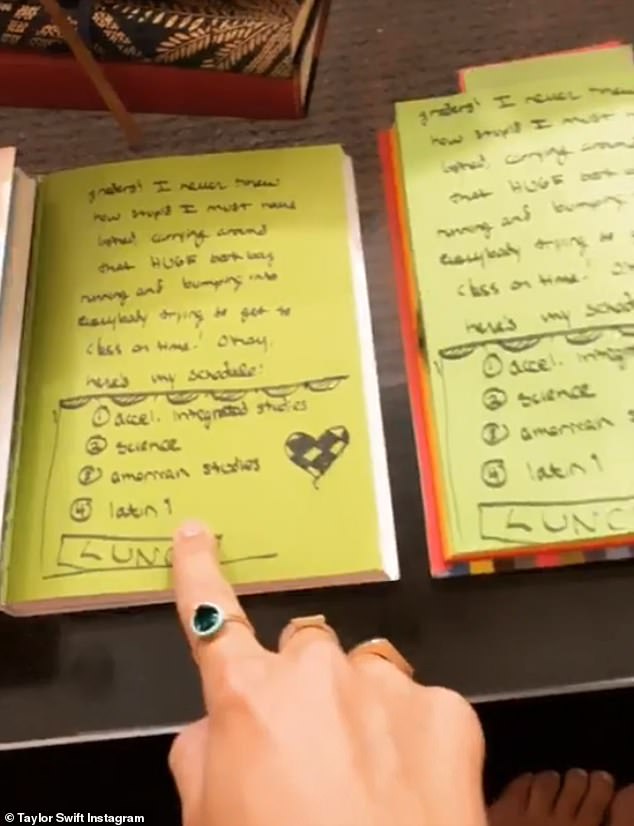 graders! I never knew
how stupid I must have
looked, carrying around
that HUGE book bag
running and bumping into
everybody trying to get to
class on time! Okay.
here's my schedule:
① accel. integrated studies
② science
③ american studies
④ latin 1
LUNC
graders! I never knew
how stupid I must
looked, carrying around
that HUGE book
running and bumping
everybody trying to
class on time! Okay
here's my schedule
① accel. integra
② science
③ american s
④ latin 1
LUNC
© Taylor Swift Instagram